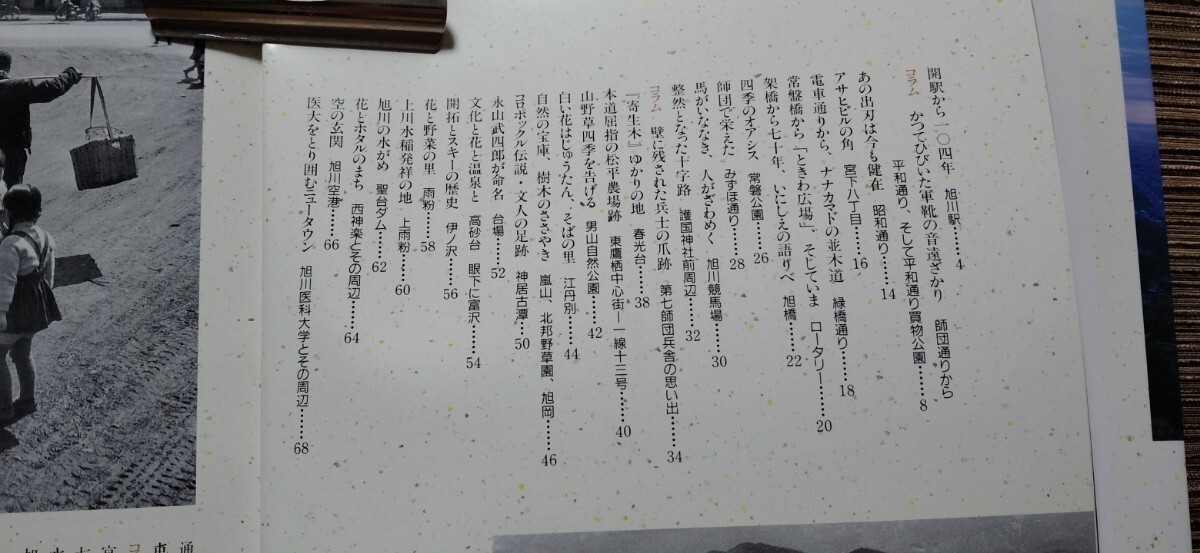 開駅から一〇四年 旭川駅……4
コラム かつてひびいた軍靴の音遠ざかり 師団通りから
平和通り、そして平和通り買物公園……8
あの出刃は今も健在 昭和通り……14
アサヒビルの角 宮下八丁目……16
電車通りから、ナナカマドの並木道 緑橋通り……18
常盤橋から「ときわ広場」、そしていま ロータリー……20
架橋から七十年、いにしえの語りべ 旭橋……22
四季のオアシス 常磐公園……26
師団で栄えた みずほ通り……28
馬がいななき、人がざわめく 旭川競馬場……30
整然となった十字路 護国神社前周辺……32
コラム 壁に残された兵士の爪跡 第七師団兵舎の思い出……34
『寄生木』ゆかりの地 春光台……38
本道屈指の松平農場跡 東鷹栖中心街―一線十三号……40
山野草四季を告げる 男山自然公園……42
白い花はじゅうたん、そばの里 江丹別……44
自然の宝庫、樹木のささやき 嵐山、北邦野草園、旭岡……46
コロボックル伝説・文人の足跡 神居古潭……50
永山武四郎が命名 台場……52
文化と花と温泉と 高砂台 眼下に富沢……54
開拓とスキーの歴史 伊ノ沢……56
花と野菜の里 雨粉……58
上川水稲発祥の地 上雨粉……60
旭川の水がめ 聖台ダム……62
花とホタルのまち 西神楽とその周辺……64
空の玄関 旭川空港……66
医大をとり囲むニュータウン 旭川医科大学とその周辺……68